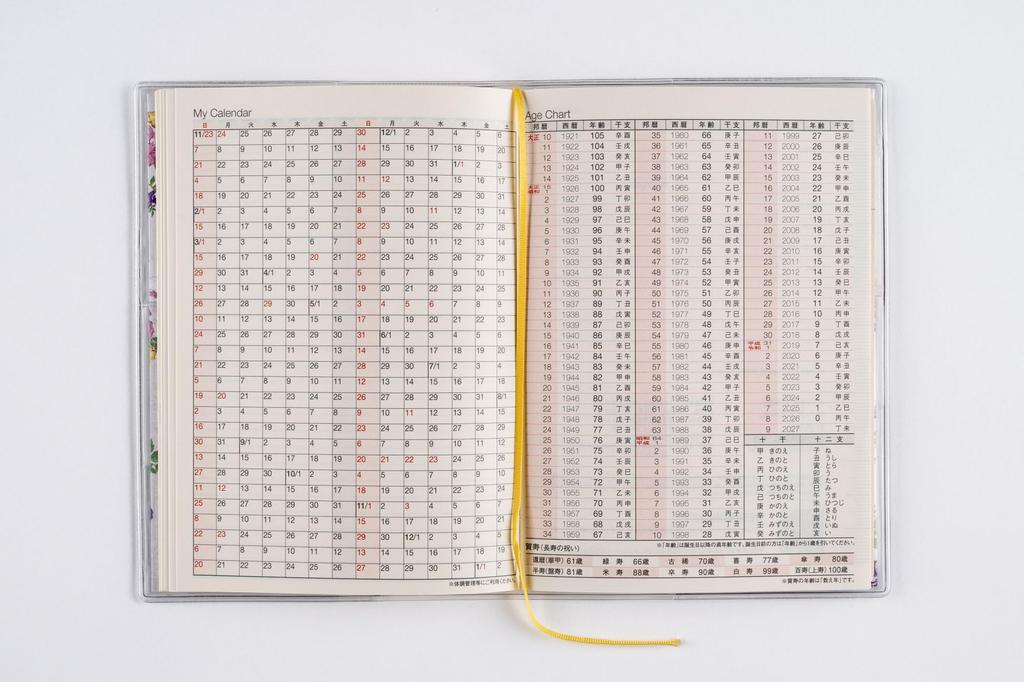 My Calendar
日 月 火 水 木 金 土 日 月 火 水 木 金 土
11/23 24 25 26 27 28 29 30 12/1 2 3 4 5 6
7 8 9 10 11 12 13 14 15 16 17 18 19 20
21 22 23 24 25 26 27 28 29 30 31 1/1 2 3
4 5 6 7 8 9 10 11 12 13 14 15 16 17
18 19 20 21 22 23 24 25 26 27 28 29 30 31
2/1 2 3 4 5 6 7 8 9 10 11 12 13 14
15 16 17 18 19 20 21 22 23 24 25 26 27 28
3/1 2 3 4 5 6 7 8 9 10 11 12 13 14
15 16 17 18 19 20 21 22 23 24 25 26 27 28
29 30 31 4/1 2 3 4 5 6 7 8 9 10 11
12 13 14 15 16 17 18 19 20 21 22 23 24 25
26 27 28 29 30 5/1 2 3 4 5 6 7 8 9
10 11 12 13 14 15 16 17 18 19 20 21 22 23
24 25 26 27 28 29 30 31 6/1 2 3 4 5 6
7 8 9 10 11 12 13 14 15 16 17 18 19 20
21 22 23 24 25 26 27 28 29 30 7/1 2 3 4
5 6 7 8 9 10 11 12 13 14 15 16 17 18
19 20 21 22 23 24 25 26 27 28 29 30 31 8/1
2 3 4 5 6 7 8 9 10 11 12 13 14 15
16 17 18 19 20 21 22 23 24 25 26 27 28 29
30 31 9/1 2 3 4 5 6 7 8 9 10 11 12
13 14 15 16 17 18 19 20 21 22 23 24 25 26
27 28 29 30 10/1 2 3 4 5 6 7 8 9 10
11 12 13 14 15 16 17 18 19 20 21 22 23 24
25 26 27 28 29 30 31 11/1 2 3 4 5 6 7
8 9 10 11 12 13 14 15 16 17 18 19 20 21
22 23 24 25 26 27 28 29 30 12/1 2 3 4 5
6 7 8 9 10 11 12 13 14 15 16 17 18 19
20 21 22 23 24 25 26 27 28 29 30 31 1/1 2
※体調管理等にご利用ください。
Age Chart
邦暦 西暦 年齢 干支
大正 10 1921 105 辛酉
11 1922 104 壬戌
12 1923 103 癸亥
13 1924 102 甲子
14 1925 101 乙丑
大正 15 昭和 1 1926 100 丙寅
2 1927 99 丁卯
3 1928 98 戊辰
4 1929 97 己巳
5 1930 96 庚午
6 1931 95 辛未
7 1932 94 壬申
8 1933 93 癸酉
9 1934 92 甲戌
10 1935 91 乙亥
11 1936 90 丙子
12 1937 89 丁丑
13 1938 88 戊寅
14 1939 87 己卯
15 1940 86 庚辰
16 1941 85 辛巳
17 1942 84 壬午
18 1943 83 癸未
19 1944 82 甲申
20 1945 81 乙酉
21 1946 80 丙戌
22 1947 79 丁亥
23 1948 78 戊子
24 1949 77 己丑
25 1950 76 庚寅
26 1951 75 辛卯
27 1952 74 壬辰
28 1953 73 癸巳
29 1954 72 甲午
30 1955 71 乙未
31 1956 70 丙申
32 1957 69 丁酉
33 1958 68 戊戌
34 1959 67 己亥
邦暦 西暦 年齢 干支
35 1960 66 庚子
36 1961 65 辛丑
37 1962 64 壬寅
38 1963 63 癸卯
39 1964 62 甲辰
40 1965 61 乙巳
41 1966 60 丙午
42 1967 59 丁未
43 1968 58 戊申
44 1969 57 己酉
45 1970 56 庚戌
46 1971 55 辛亥
47 1972 54 壬子
48 1973 53 癸丑
49 1974 52 甲寅
50 1975 51 乙卯
51 1976 50 丙辰
52 1977 49 丁巳
53 1978 48 戊午
54 1979 47 己未
55 1980 46 庚申
56 1981 45 辛酉
57 1982 44 壬戌
58 1983 43 癸亥
59 1984 42 甲子
60 1985 41 乙丑
61 1986 40 丙寅
62 1987 39 丁卯
63 1988 38 戊辰
昭和 64 平成 1 1989 37 己巳
2 1990 36 庚午
3 1991 35 辛未
4 1992 34 壬申
5 1993 33 癸酉
6 1994 32 甲戌
7 1995 31 乙亥
8 1996 30 丙子
9 1997 29 丁丑
10 1998 28 戊寅
邦暦 西暦 年齢 干支
11 1999 27 己卯
12 2000 26 庚辰
13 2001 25 辛巳
14 2002 24 壬午
15 2003 23 癸未
16 2004 22 甲申
17 2005 21 乙酉
18 2006 20 丙戌
19 2007 19 丁亥
20 2008 18 戊子
21 2009 17 己丑
22 2010 16 庚寅
23 2011 15 辛卯
24 2012 14 壬辰
25 2013 13 癸巳
26 2014 12 甲午
27 2015 11 乙未
28 2016 10 丙申
29 2017 9 丁酉
30 2018 8 戊戌
平成 31 令和 1 2019 7 己亥
2 2020 6 庚子
3 2021 5 辛丑
4 2022 4 壬寅
5 2023 3 癸卯
6 2024 2 甲辰
7 2025 1 乙巳
8 2026 0 丙午
9 2027 丁未
十干
甲 きのえ
乙 きのと
丙 ひのえ
丁 ひのと
戊 つちのえ
己 つちのと
庚 かのえ
辛 かのと
壬 みずのえ
癸 みずのと
十二支
子 ね
丑 うし
寅 とら
卯 う
辰 たつ
巳 み
午 うま
未 ひつじ
申 さる
酉 とり
戌 いぬ
亥 い
※「年齢」は誕生日以降の満年齢です。誕生日前の方は「年齢」から1歳を引いてください。
賀寿(長寿の祝い)
還暦(華甲) 61歳 緑寿 66歳 古稀 70歳 喜寿 77歳 傘寿 80歳
半寿(盤寿) 81歳 米寿 88歳 卒寿 90歳 白寿 99歳 百寿(上寿) 100歳
※賀寿の年齢は「数え年」です。